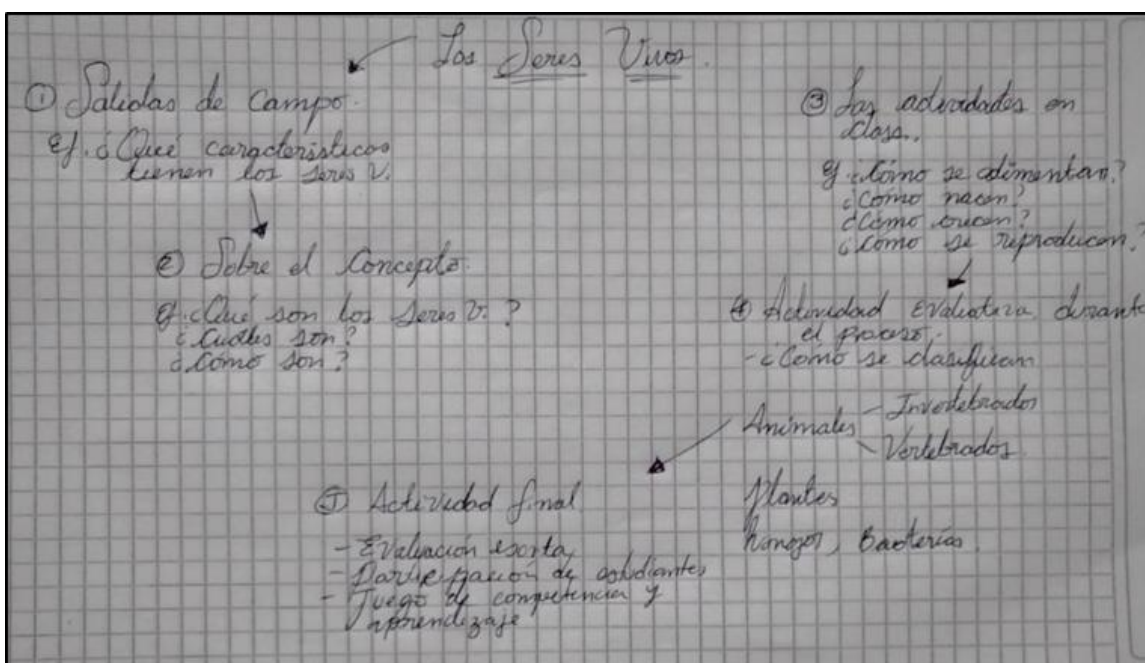 Los Seres Vivos.
① Salidas de Campo.
Ej. ¿Qué características
tienen los seres V.
② Sobre el Concepto.
Ej. ¿Qué son los Seres V. ?
¿Cuáles son?
¿Cómo son?
③ Las actividades en
clase..
Ej. ¿Cómo se alimentan?
¿Cómo nacen?
¿Cómo crecen?
¿Cómo se reproducen?
④ Actividad Evaluativa durante
el proceso.
- ¿Cómo se clasifican
Animales
- Invertebrados
- Vertebrados
Plantas
hongos, Bacterias.
⑤ Actividad final
- Evaluación escrita
- Participación de estudiantes
- Juego de competencia y
aprendizaje